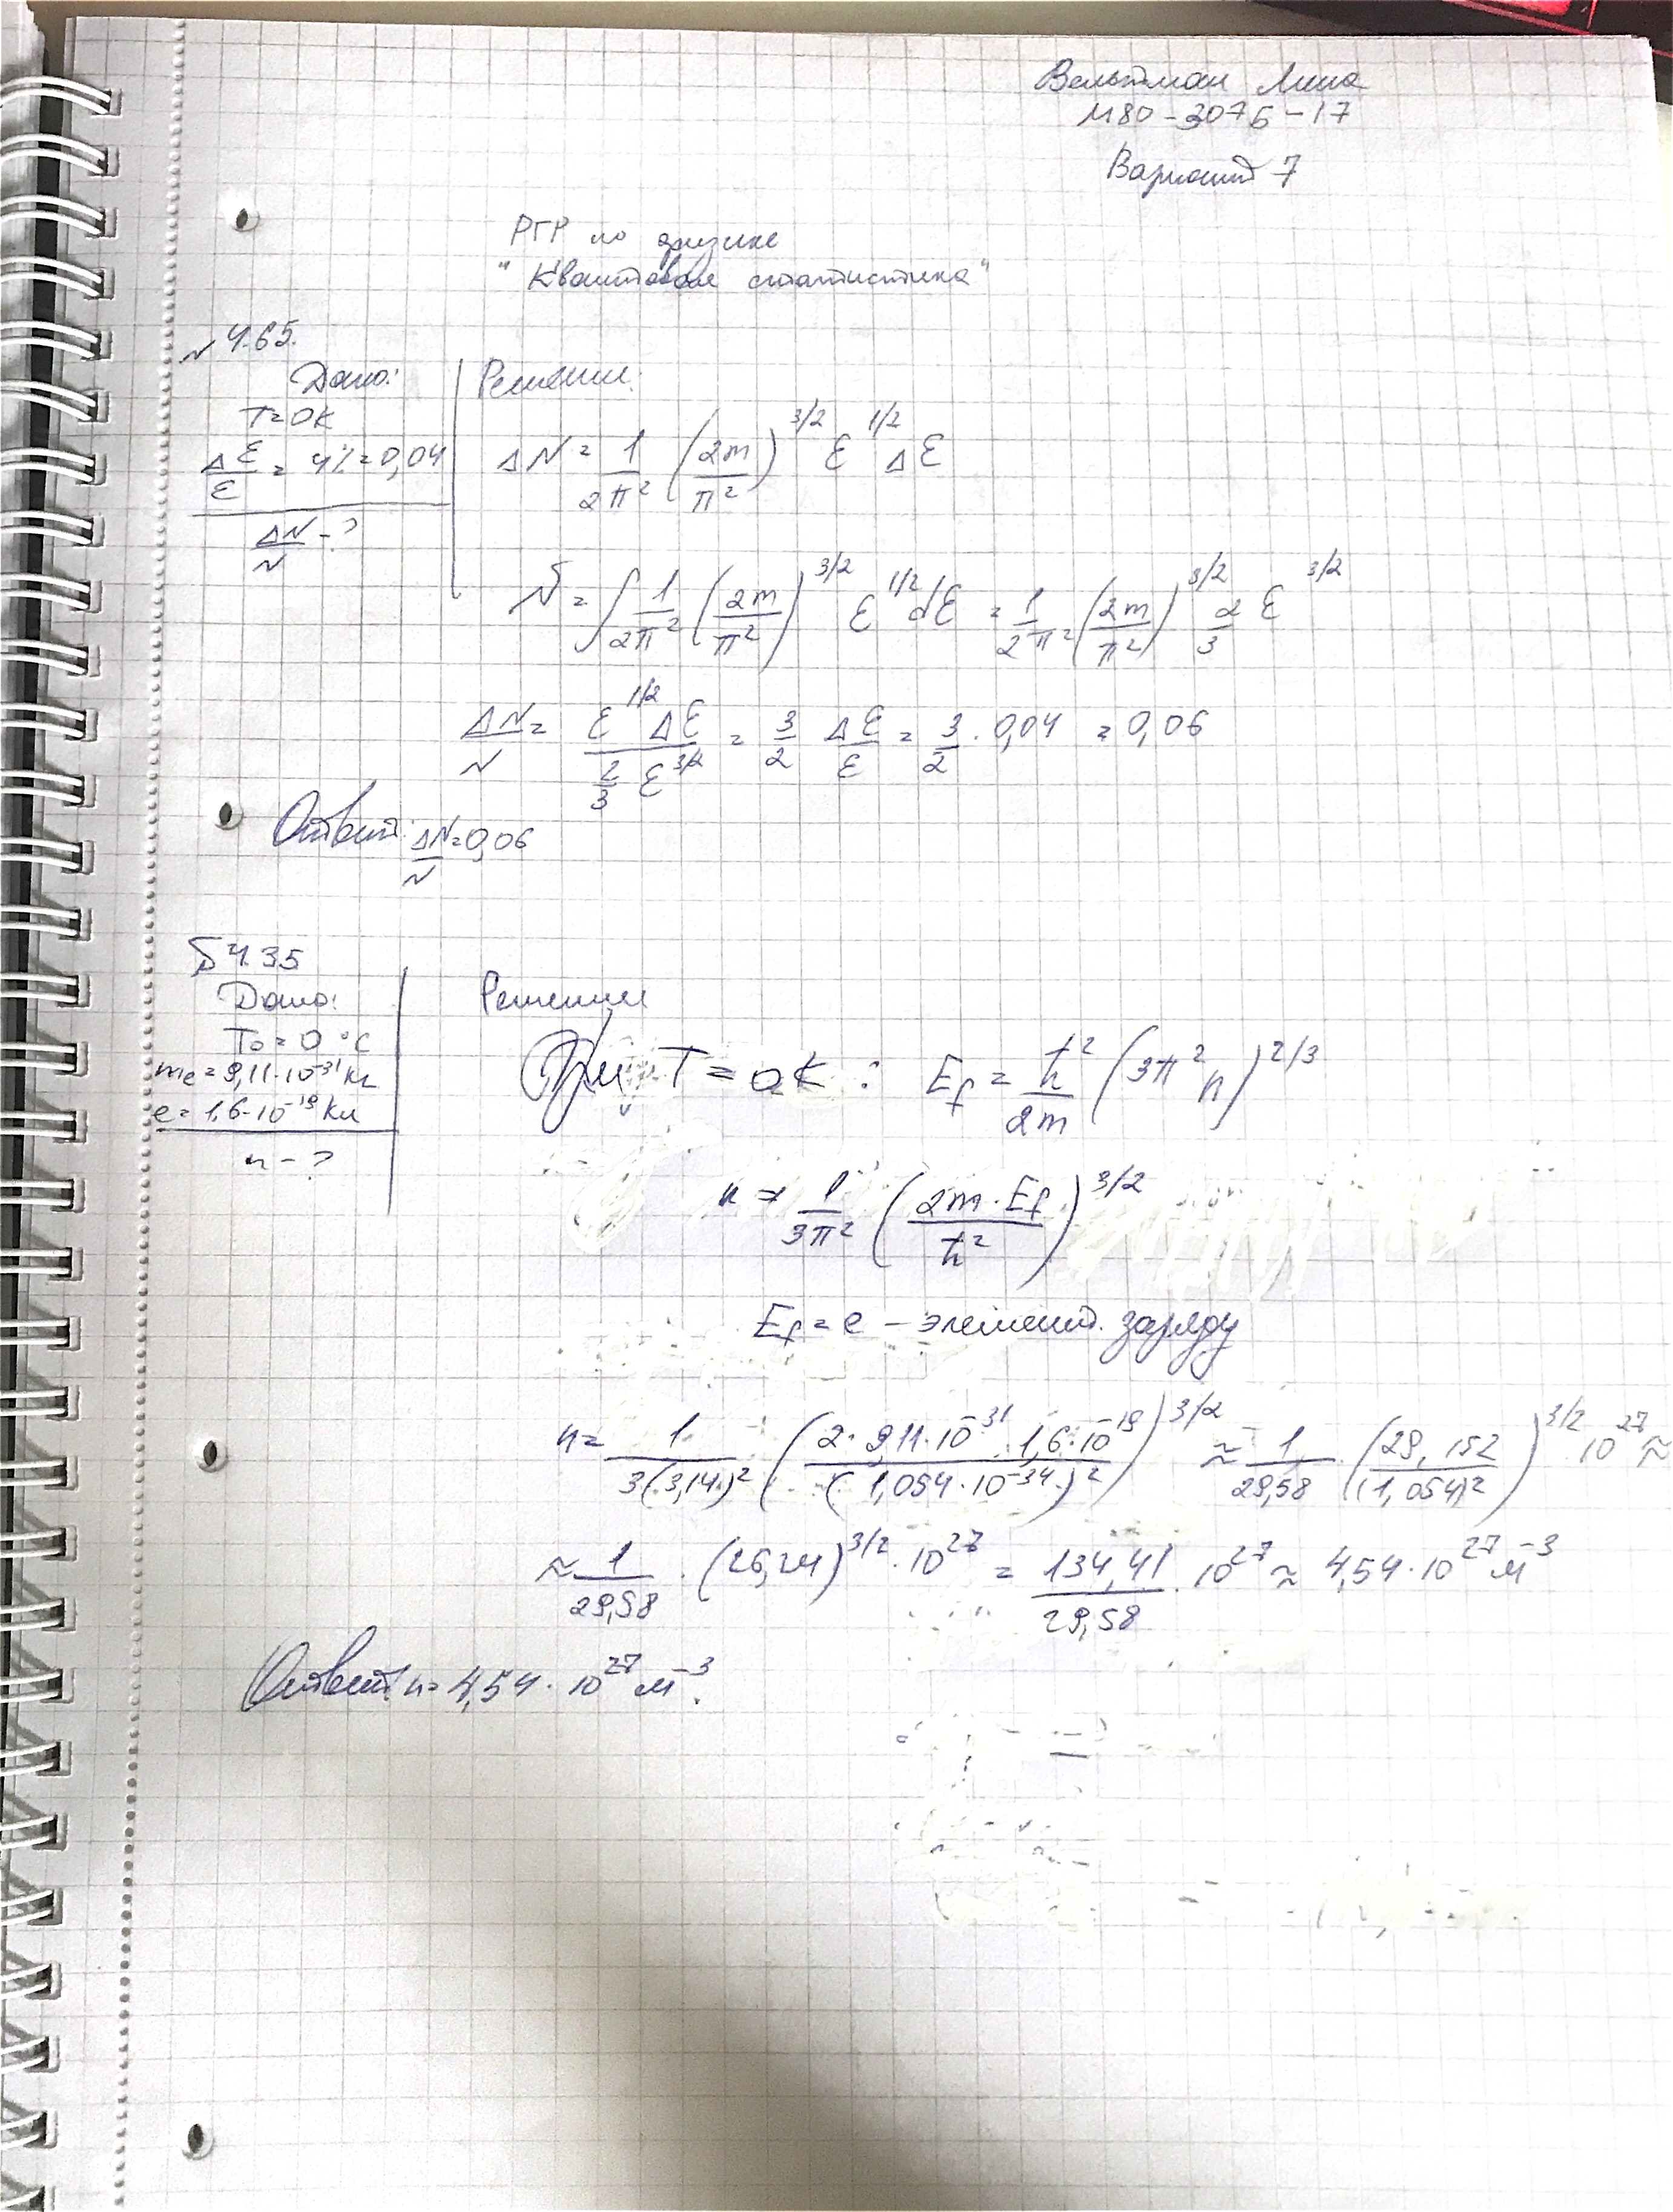 Вельтман Лина
М80-307Б-17
Вариант 7
РГР по физике
"Квантовая статистика"
№ 4.65.
Дано:
T=0К
Δε/ε = 4%=0,04
ΔN/N -?
Решение:
ΔN = 1/(2π²) (2m/π²)^(3/2) ε^(1/2) Δε
N = ∫ 1/(2π²) (2m/π²)^(3/2) ε^(1/2) dε = 1/(2π²) (2m/π²)^(3/2) 2/3 ε^(3/2)
ΔN/N = (ε^(1/2) Δε)/(2/3 ε^(3/2)) = 3/2 Δε/ε = 3/2 · 0,04 = 0,06
Ответ: ΔN/N = 0,06
4.35
Дано:
T₀ = 0 °C
me = 9,11·10⁻³¹ кг
e = 1,6·10⁻¹⁹ Кл
n - ?
Решение
При T = 0К : E_f = ħ²/2m (3π²n)^(2/3)
n = 1/(3π²) ((2m·E_f)/ħ²)^(3/2)
E_f = e – элемент. заряду
n = 1/(3(3,14)²) ((2·9,11·10⁻³¹ 1,6·10⁻¹⁹)/(1,054·10⁻³⁴)²)^(3/2) ≈ 1/29,58 (29,152/(1,054)²)^(3/2) 10²⁷ ≈
≈ 1/29,58 · (26,24)^(3/2) · 10²⁷ = 134,41/29,58 · 10²⁷ ≈ 4,54·10²⁷ м⁻³
Ответ: n = 4,54 · 10²⁷ м⁻³.